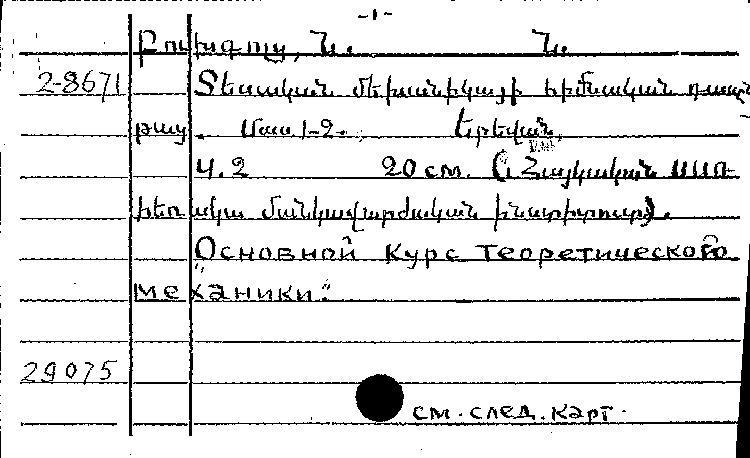 -1-
Բուխգոլց, Ն. Ն.
2-8671 Տեսական մեխանիկայի հիմնական դասըն
թաց. Մաս 1-2. Երևան,
ч. 2 20 см. (Հայկական ՍՍՌ
հեռակա մանկավարժական ինստիտուտ).
"Основной курс теоретического
механики."
29075
см. след. карт.